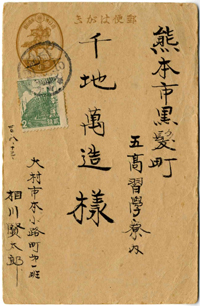 郵便はがき
熊本市黒髪町
五高習學寮内
千地萬造様
大村市本小路町
相川賢太郎